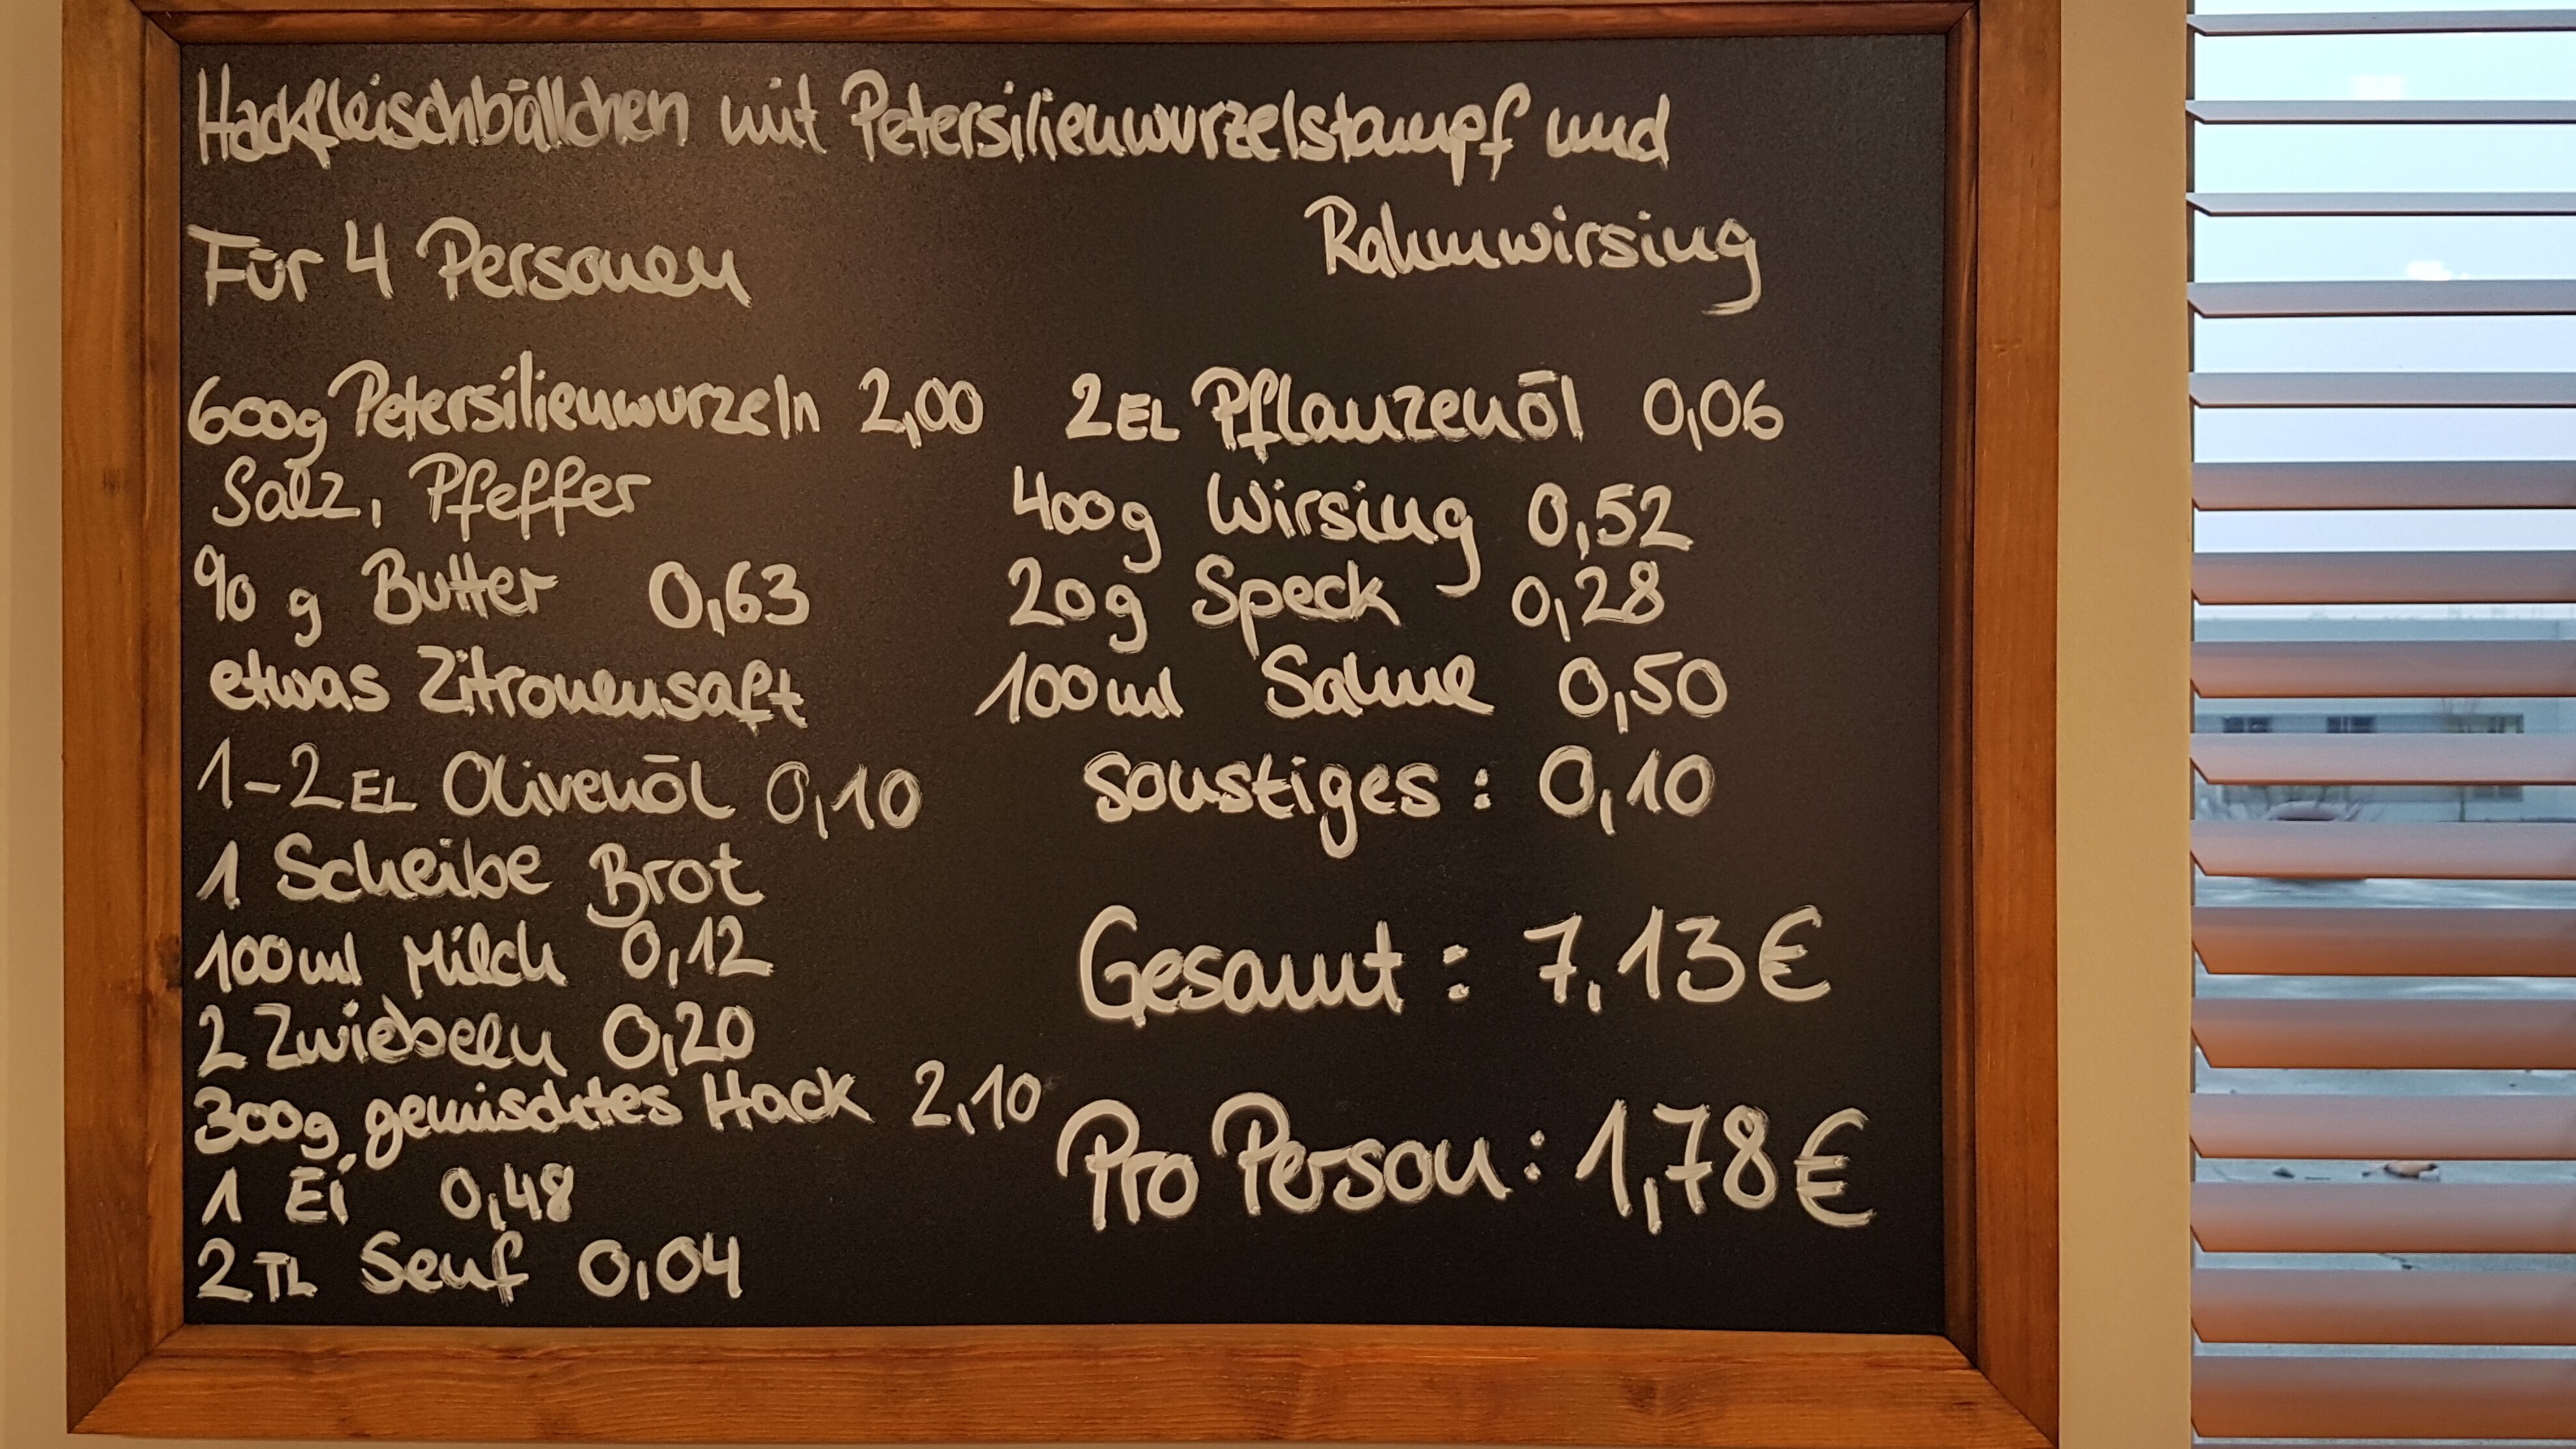 Hackfleischbällchen mit Petersilienwurzelstampf und
Rahmwirsing
Für 4 Personen
600g Petersilienwurzeln 2,00
Salz, Pfeffer
90 g Butter 0,63
etwas Zitronensaft
1-2 EL Olivenöl 0,10
1 Scheibe Brot
100ml Milch 0,12
2 Zwiebeln 0,20
300g gemischtes Hack 2,10
1 Ei 0,48
2 TL Senf 0,04
2 EL Pflanzenöl 0,06
400g Wirsing 0,52
20g Speck 0,28
100ml Sahne 0,50
sonstiges: 0,10
Gesamt: 7,13€
Pro Person: 1,78€